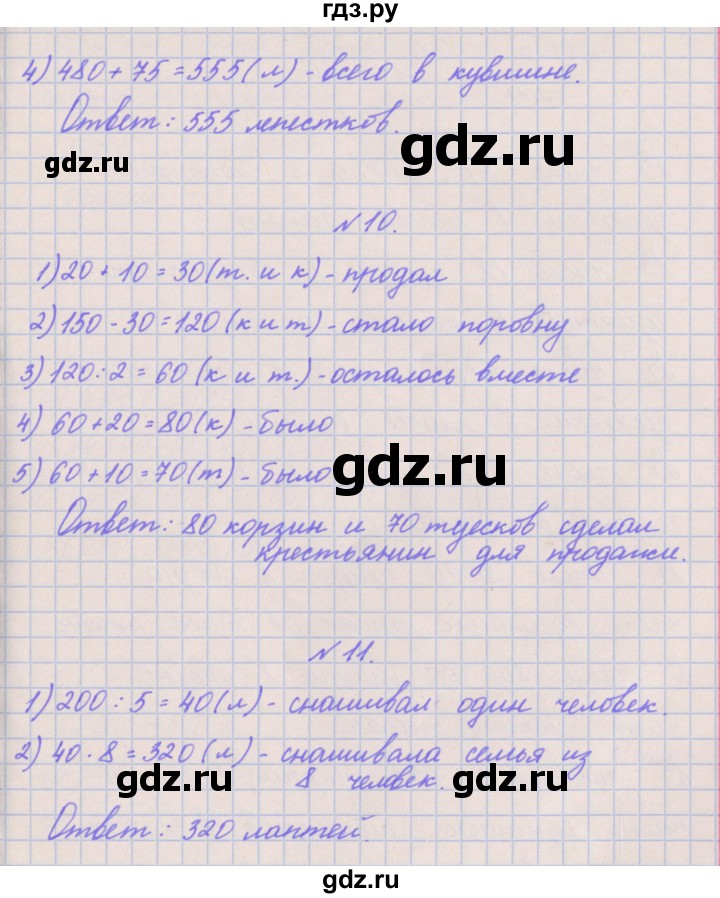 гдз.ру
4) 480 + 75 = 555 (л) - всего в кувшине.
Ответ: 555 лепестков.
gdz.ru
gdz.ru
№ 10.
1) 20 + 10 = 30 (т. и к) - продал
2) 150 - 30 = 120 (к и т) - стало поровну
3) 120 : 2 = 60 (к и т.) - осталось вместе
4) 60 + 20 = 80 (к) - было
5) 60 + 10 = 70 (т) - было
gdz.ru
Ответ: 80 корзин и 70 туесков сделал
крестьянин для продажи.
№ 11.
1) 200 : 5 = 40 (л) - снашивал один человек.
2) 40 · 8 = 320 (л) - снашивала семья из
8 человек.
gdz.ru
gdz.ru
Ответ: 320 лаптей.
gdz.ru